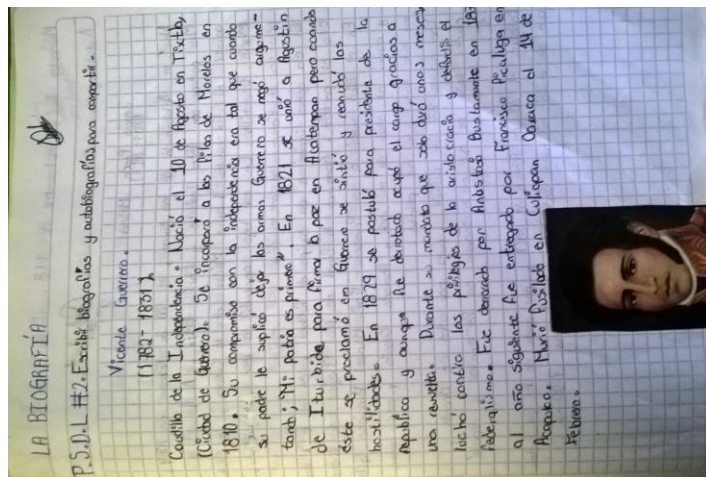 LA BIOGRAFÍA
P.S.D.L #2 Escribir biografías y autobiografías para compartir.
Vicente Guerrero.
(1782-1831)
Caudillo de la Independencia. Nació el 10 de Agosto en Tixtla,
(Ciudad de Guerrero). Se incorporó a las filas de Morelos en
1810. Su compromiso con la independencia era tal que cuando
su padre le suplicó dejar las armas Guerrero se negó argume-
tando; "Mi patria es primero". En 1821 se unió a Agustín
de Iturbide para firmar la paz en Acatempan pero cuando
éste se proclamó em Guerrero se sintió y reanudó las
hostilidades. En 1829 se postuló para presidente de la
República y aunque fue derrotado ocupó el cargo gracias a
una revuelta. Durante su mandato que solo duró unos meses
luchó contra los privilegios de la aristocracia y defendió el
federalismo. Fue derrocado por Anastasio Bustamante en 18
al año siguiente fue entregado por Francisco Picaluga en
Acapulco. Murió fusilado en Cuilapan Oaxaca el 14 de
Febrero.